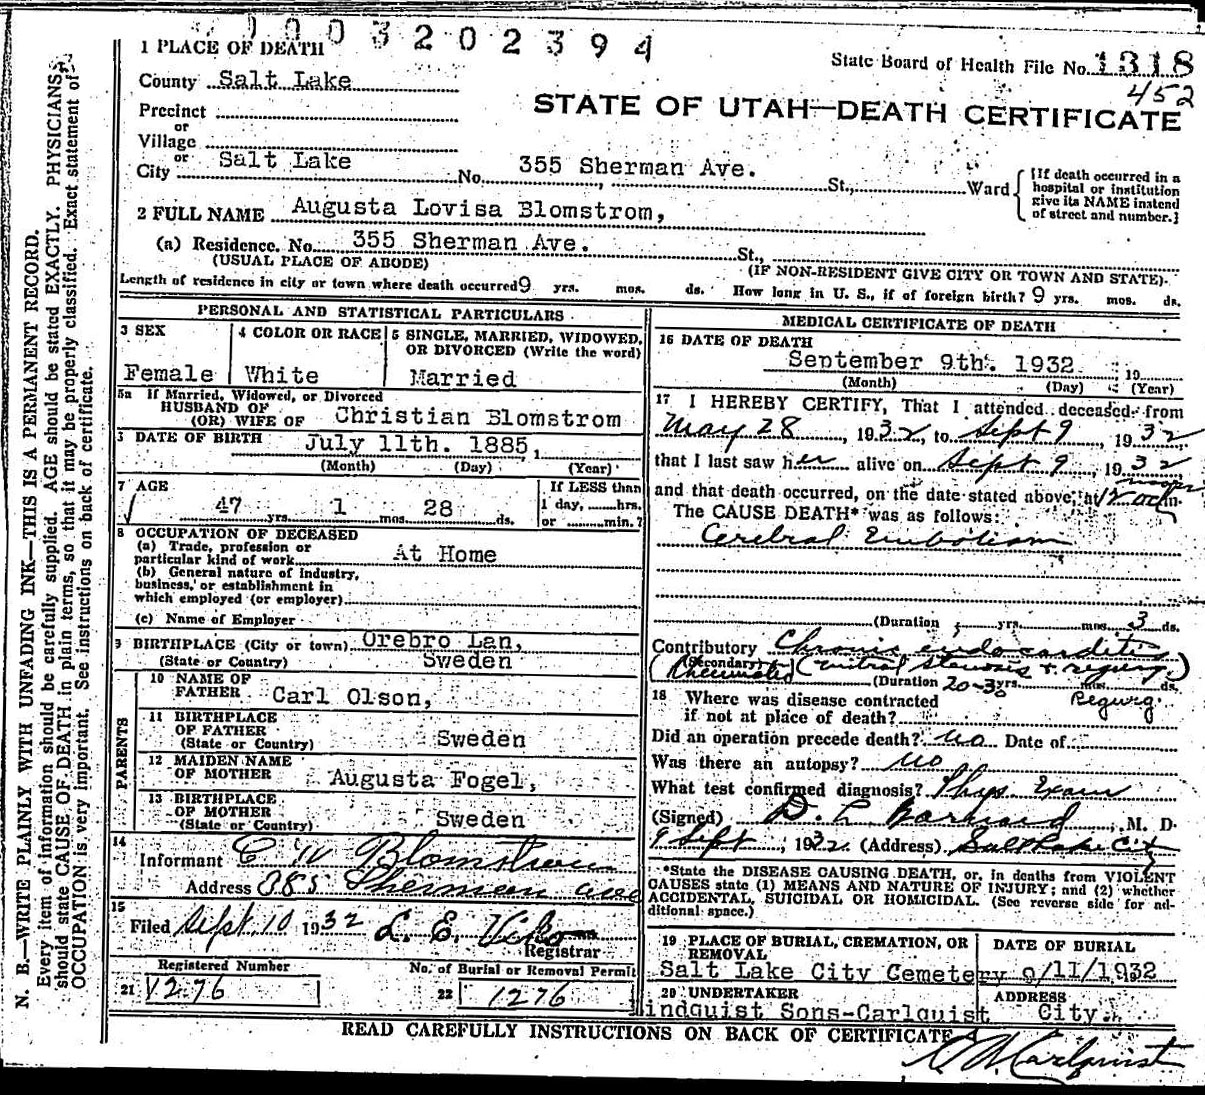 0003202394
1 PLACE OF DEATH
State Board of Health File No. 1318
452
County Salt Lake
STATE OF UTAH—DEATH CERTIFICATE
Precinct
or
Village
or
City Salt Lake No. 355 Sherman Ave. St., Ward
[If death occurred in a hospital or institution give its NAME instead of street and number.]
2 FULL NAME Augusta Lovisa Blomstrom,
(a) Residence. No. 355 Sherman Ave. St.,
(USUAL PLACE OF ABODE) (IF NON-RESIDENT GIVE CITY OR TOWN AND STATE)
Length of residence in city or town where death occurred 9 yrs. mos. ds. How long in U. S., if of foreign birth? 9 yrs. mos. ds.
PERSONAL AND STATISTICAL PARTICULARS
3 SEX
Female
4 COLOR OR RACE
White
5 SINGLE, MARRIED, WIDOWED,
OR DIVORCED (Write the word)
Married
5a If Married, Widowed, or Divorced
HUSBAND OF
(OR) WIFE OF Christian Blomstrom
DATE OF BIRTH July 11th. 1885,
(Month) (Day) (Year)
7 AGE
47 yrs. 1 mos. 28 ds.
If LESS than
1 day, hrs.
or min.?
8 OCCUPATION OF DECEASED
(a) Trade, profession or
particular kind of work At Home
(b) General nature of industry,
business, or establishment in
which employed (or employer)
(c) Name of Employer
9 BIRTHPLACE (City or town) Orebro Lan,
(State or Country) Sweden
PARENTS
10 NAME OF
FATHER Carl Olson,
11 BIRTHPLACE
OF FATHER
(State or Country) Sweden
12 MAIDEN NAME
OF MOTHER Augusta Fogel,
13 BIRTHPLACE
OF MOTHER
(State or Country) Sweden
14
Informant C W Blomstrom
Address 385 Sherman ave
15
Filed Sept. 10 1932 L. E. Viko
Registrar
Registered Number
21 1276
No. of Burial or Removal Permit
22 1276
MEDICAL CERTIFICATE OF DEATH
16 DATE OF DEATH
September 9th. 1932 19
(Month) (Day) (Year)
17 I HEREBY CERTIFY, That I attended deceased from
May 28, 1932, to Sept 9, 1932
that I last saw her alive on Sept 9, 1932
noon
and that death occurred, on the date stated above, at 12 ock m.
The CAUSE DEATH* was as follows:
Cerebral Embolism
(Duration yrs. mos. 3 ds.
Contributory Chronic endocarditis
(Secondary)
(Rheumatic) (mitral stenosis + regurg.)
(Duration 20-30 yrs. mos. ds.
Regurg.
18 Where was disease contracted
if not at place of death?
Did an operation precede death? no Date of
Was there an autopsy? no
What test confirmed diagnosis? Phys Exam
(Signed) D. L. Barnard, M. D.
9 Sept, 1932. (Address) Salt Lake City
*State the DISEASE CAUSING DEATH, or, in deaths from VIOLENT
CAUSES state (1) MEANS AND NATURE OF INJURY; and (2) whether
ACCIDENTAL, SUICIDAL OR HOMICIDAL. (See reverse side for ad-
ditional space.)
19 PLACE OF BURIAL, CREMATION, OR
REMOVAL
Salt Lake City Cemetery
DATE OF BURIAL
9/11/1932
20 UNDERTAKER
Lindquist Sons-Carlquist
ADDRESS
City.
READ CAREFULLY INSTRUCTIONS ON BACK OF CERTIFICATE
C W Carlquist
N. B.—WRITE PLAINLY WITH UNFADING INK—THIS IS A PERMANENT RECORD.
Every item of information should be carefully supplied. AGE should be stated EXACTLY. PHYSICIANS
should state CAUSE OF DEATH in plain terms, so that it may be properly classified. Exact statement of
OCCUPATION is very important. See instructions on back of certificate.